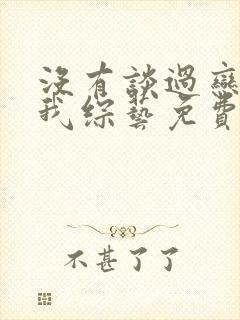 沒有談過戀
我綜藝免費
不甚了了